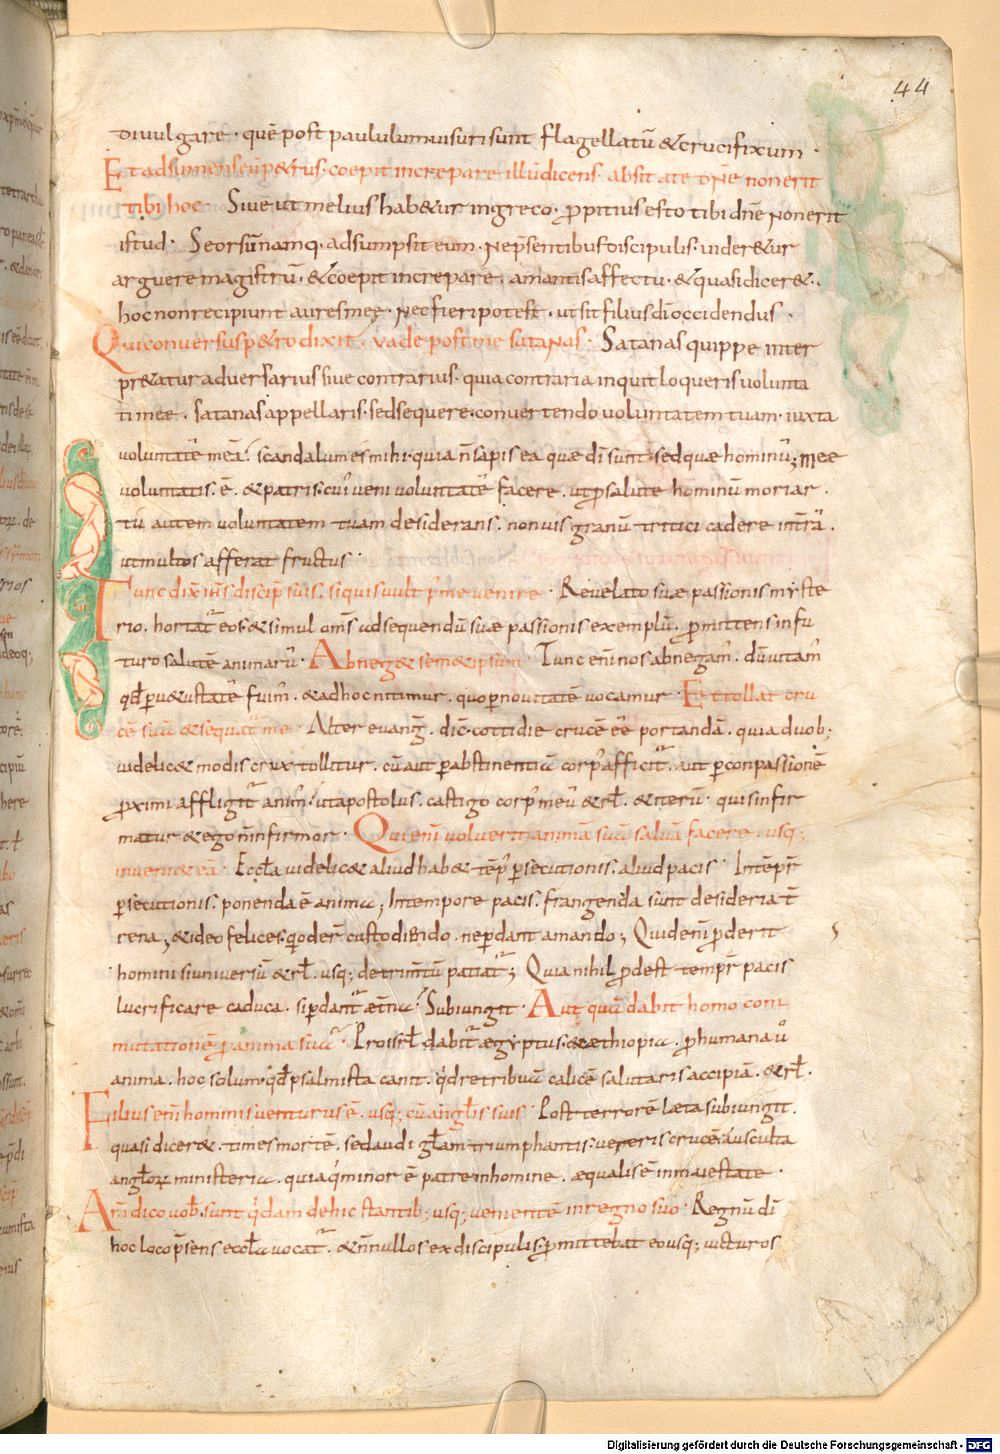 44
diuulgare · quē post paululum uisuri sunt flagellatū & crucifixum ·
Et adsumens eū p&rus · coepit increpare illū dicens · absit a te dn̄e non erit
tibi hoc · Siue ut melius hab&ur in greco · propitius esto tibi dn̄e Non erit
istud · Seorsū namq· adsumpsit eum · Ne p̄sentibus discipulis · uider&ur
arguere magistrū · & coepit increpare · amantis affectu · & quasi dicer& ·
hoc non recipiunt aures meę · Nec fieri potest · ut sit filius dī occidendus ·
Qui conuersus p&ro dixit · vade post me sataNas · Satanas quippe inter
pr&atur aduersarius siue contrarius · quia contraria inquit loqueris volunta
ti meae · satanas appellaris · sed sequere · conuertendo uoluntatem tuam · iuxta
uoluntatē meā · scandalum es mihi · quia n̄ sapis ea quae dī sunt · sed quae hominū; meae
uoluntatis · ē · & patris · cui' ueni uoluntatē facere · ut p salute hominū moriar ·
tū autem uoluntatem tuam desiderans · non uis granū tritici cadere in trā ·
ut multos afferat fructus ·
Tunc dix̄ ihs̄ discip̄ suis · si quis uult p' me uenire · Reuelato suae passionis myste
rio · hortat̄ eos · & simul om̄s ad sequendū suae passionis exemplū · pmittens in fu
turo salutē animarū · Abneg& sem&ipsum · Tunc eni nos abnegam' · dū uitam
qd̄ p u&ustatē fuim' · & ad hoc nitimur · quo p nouitatē uocamur · Et tollat cru
cē suā & sequat̄ me · Alter euanḡ · dic̄ · cottidie crucē eē portandā · quia duob;
uidelic& modis crux tollitur · cū aut p abstinentiā corp' afficit̄ · aut p conpassionē
proximi affligit̄ anim' · ut apostolus · castigo corp' meū & rl̄ · & iterū · quis infir
matur & ego n̄ infirmor · Qui eni uoluerit animā suā saluā facere · usq;
inueni& eā · Eccl̄a uidelic& aliud hab& temp' psecutionis · aliud pacis · In temp̄r
psecutionis · ponenda ē anima; In tempore pacis · frangenda sunt desideria t̄
rena; & ideo felices · quod er̄ custodi&ndo · ne perdant amando; Quid eni pderit
homini si uniuersū & rl̄ · usq; detrim̄tū patiat̄; Quia nihil pdest temp̄r pacis
lucrificare caduca · si pdant̄ aetn̄a · Subiungit · Aut quā dabit homo com
mutationē p anima sua · Pro isrl̄ dabit̄ aegyptus · & aethiopia · p humana ū
anima · hoc solum · qd̄ psalmista canit · qd̄ retribuā calicē salutaris accipiā · & rl̄ ·
Filius eni hominis uenturus ē · usq; cū angl̄is suis · Post terrorē laeta subiungit ·
quasi dicer& · times mortē · sed audi gl̄am triumphantis · uereris crucē ausculta
angl̄orū ministeria · quia q' minor ē patre in homine · aequalis ē in maiestate ·
Am̄ dico uob̄ · sunt q'dam de hic stantib; usq; uenientē in regno suo · Regnū dī
hoc loco p̄sens eccl̄a uocat̄ · & n̄ nullos ex discipulis · pmittebat eo usq; uicturos
Digitalisierung gefördert durch die Deutsche Forschungsgemeinschaft - DFG